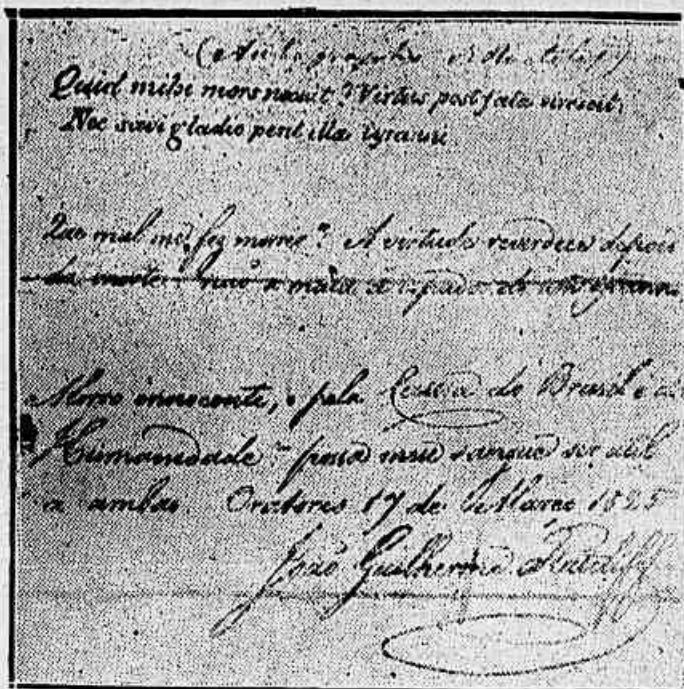 Quid mihi mors nocuit? Virtus post fata virescit:
Nec sævi gladio perit illa tyranni
Que mal me fez morrer? A virtude reverdece depois
da morte: não a mata a espada de um tyranno
Morro innocente, pela Causa do Brasil e da
Humanidade: possa meu sangue ser util
a ambas. Oratorio 17 de Março 1825
João Guilherme Ratcliff